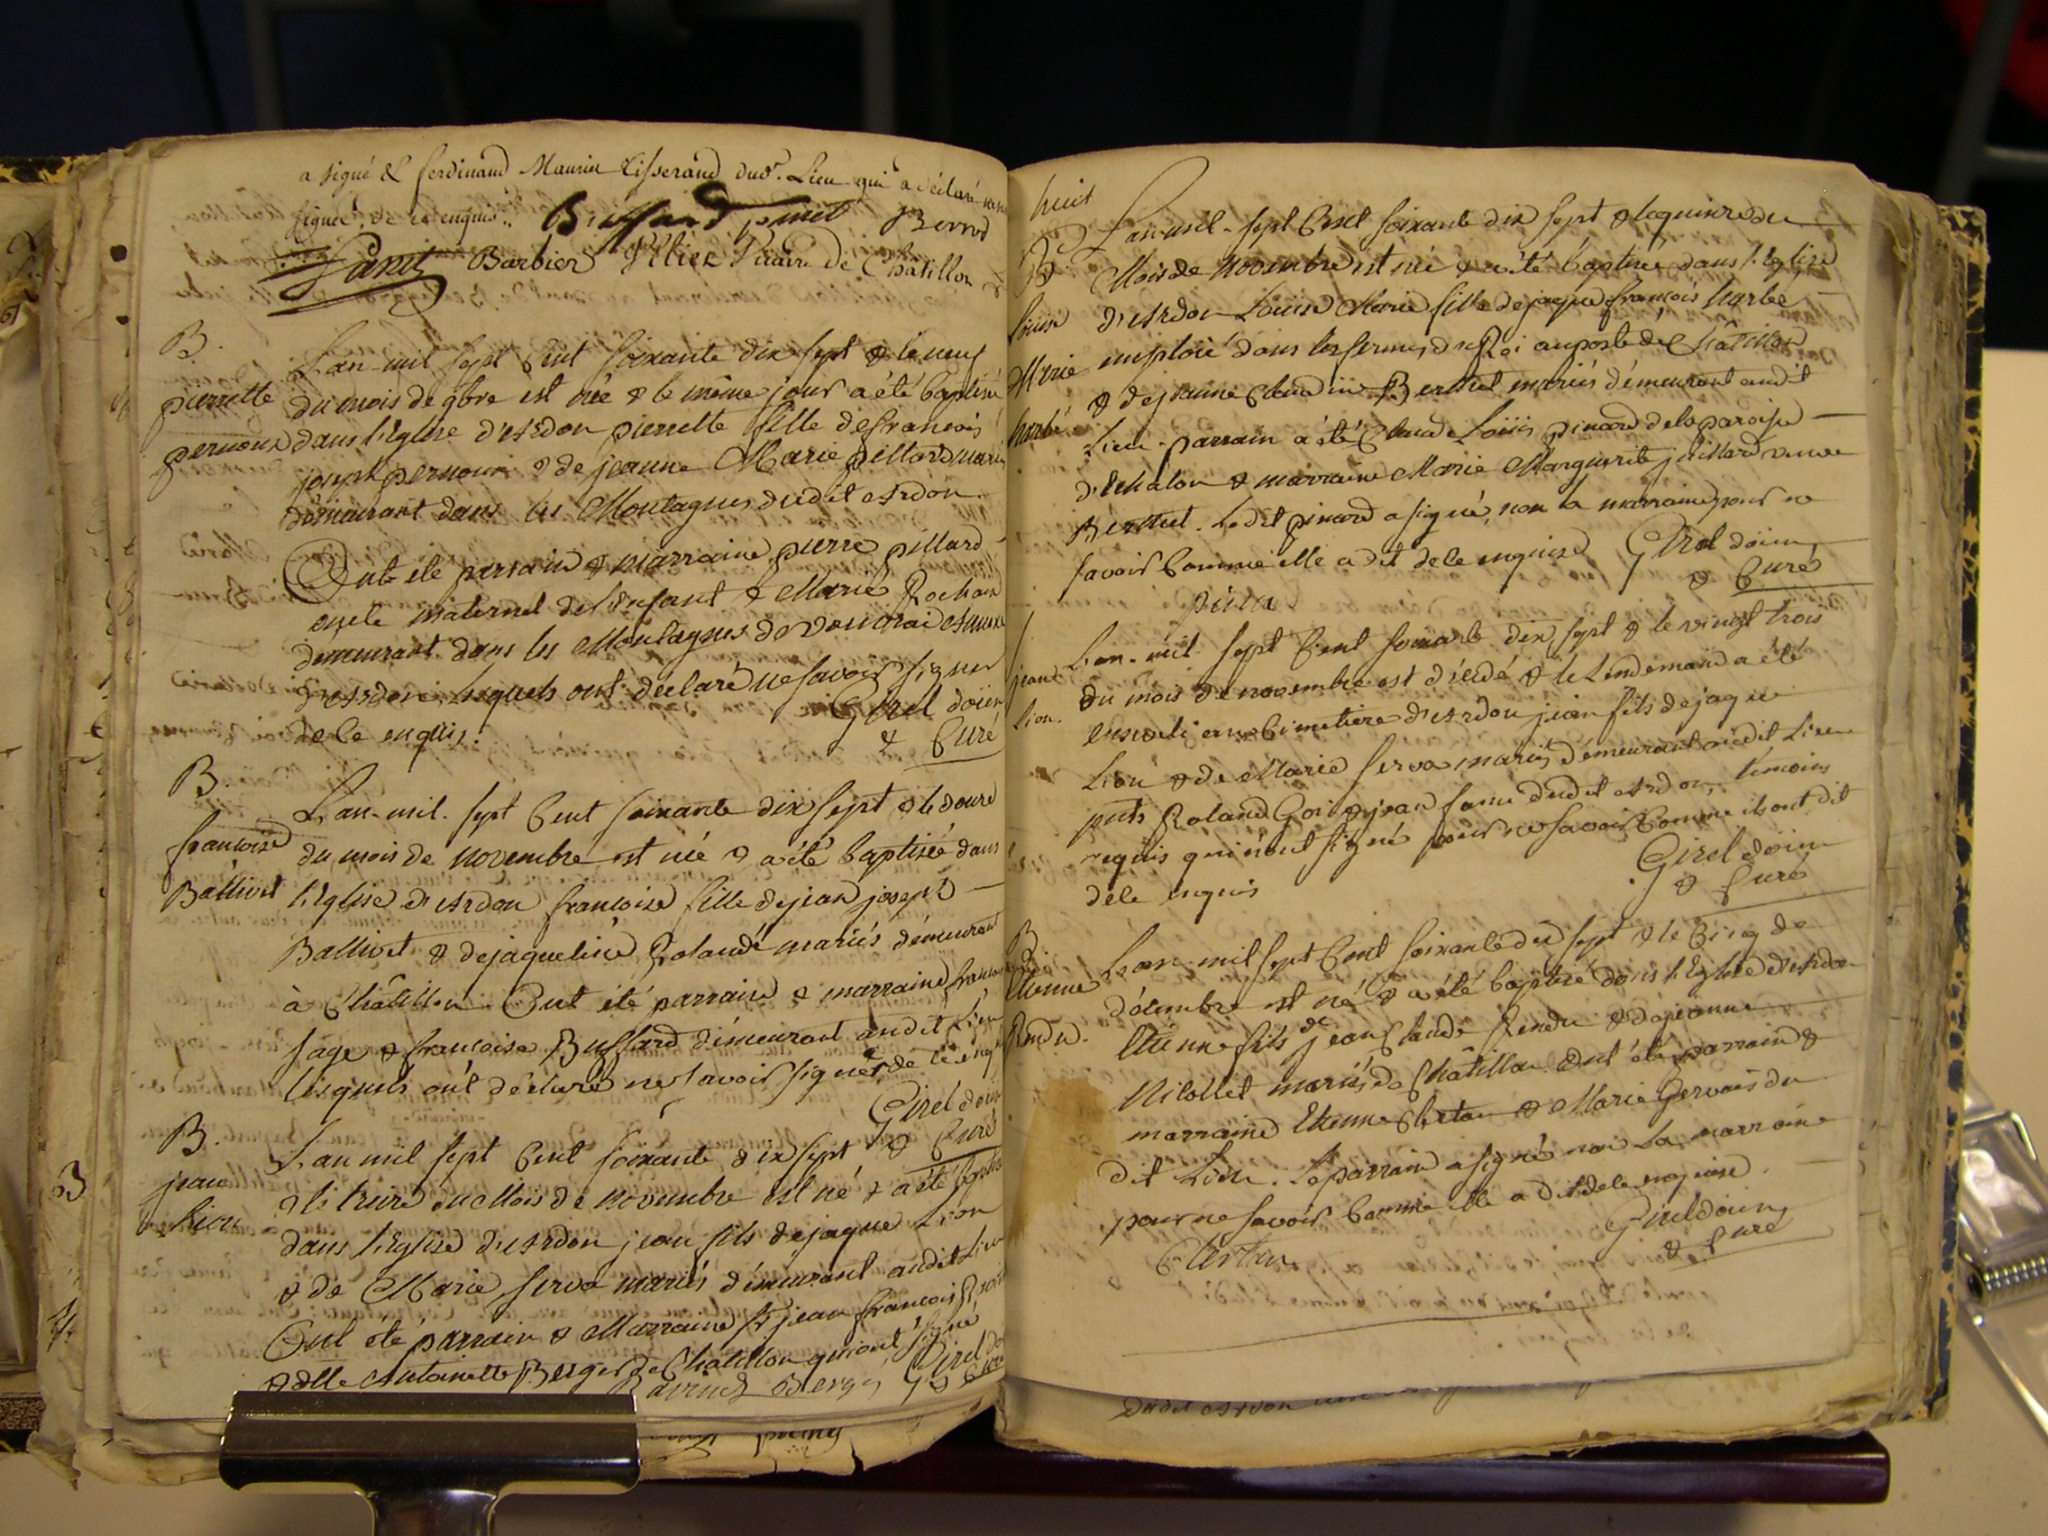 a signé & ferdinand Maurin tisserand dud. Lieu qui a déclaré
signer de ce enquis.. Buffard pinet Berrod
Janet Barbier Vicaire de Chatillon
B.
pierrette
pernoux
L'an mil sept Cent soixante dix sept & le neuf
du mois de 9bre est née & le même jour a été baptisé
dans l'Eglise d'Ardon pierrette fille de francois
joseph pernoux & de jeanne Marie pillard
démeurant dans les Montagnes dudit Ardon.
Ont été parrain & marraine pierre pillard
oncle maternel de l'enfant & Marie Rochaix
demeurant dans les Montagnes de annexe
d'Ardon lesquels ont déclaré ne savoir signer
de ce enquis.
Girel doien
& Curé
B.
francoise
Ballivet
L'an mil sept Cent soixante dix sept & le douze
du mois de novembre est née & a été baptisée dans
l'Eglise d'Ardon francoise fille de jean joseph
Ballivet & de jaqueline Rolande mariés démeurant
à Châtillon Ont été parrain & marraine
sage & francoise Buffard démeurant audit Lieu
lesquels ont déclaré ne savoir signer de ce
Girel doien
& Curé
B.
jean
Lion
L'an mil sept Cent soixante dix sept
& le treize du Mois de novembre est né & a été
dans l'Eglise d'Ardon jean fils de jaque Lion
& de Marie serva mariés démeurant audit Lieu
Ont été parrain & Marraine sr jean francois
& delle Antoinette Berger de Châtillon qui ont signé
Berger Girel
& Curé
huit
B
Louise
Marie
harbé
L'an mil sept Cent soixante dix sept & le quinze du
Mois de Novembre est née & a été baptisée dans l'Eglise
d'Ardon Louise Marie fille de jaque francois harbe
emploié dans les fermes du Roi au poste de Châtillon
& de jeanne Claudine Berthet mariés démeurant audit
Lieu parrain a été Claude Loüis pinard de la paroisse
d'Echalon & marraine Marie Marguerite juillard veuve
Berthet. Ledit pinard a signé, non la marraine pour ne
savoir Comme elle a dit de ce enquise Girel doien
& Curé
jean
Lion.
L'an mil sept Cent soixante dix sept & le vingt trois
du mois de novembre est décédé & le Lendemain a été
enseveli au Cimetiere d'Ardon jean fils de jaque
Lion & de Marie serva mariés démeurant audit Lieu
pnts Roland Goi & jean famé dudit Ardon, témoins
requis qui n'ont signé pour ne savoir Comme ils ont dit
de ce enquis
Girel doien
& Curé
B
Etienne
Rendu.
L'an mil sept Cent soixante dix sept & le Cinq de
décembre est né & a été baptisé dans l'Eglise d'Ardon
Etienne fils de jean Claude Rendu & de jeanne
Nicollet mariés de Châtillon. Ont été parrain &
marraine Etienne & Marie Gervais du
dit Lieu. Le parrain a signé non La marraine
pour ne savoir Comme elle a dit de ce enquise
Girel doien
& Curé
dudit Ardon